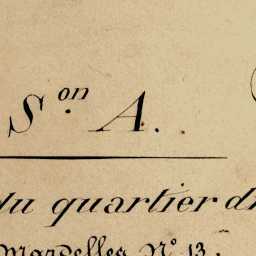 S.on A.
du quartier d
Marseilles N° 13.